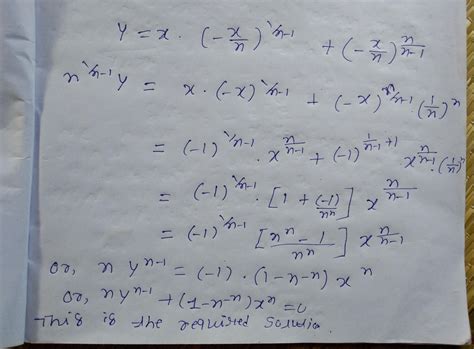 Y = x · (-x/n)^1/n-1 + (-x/n)^n/n-1
n^1/n-1 Y = x · (-x)^1/n-1 + (-x)^n/n-1 · (1/n)^n
= (-1)^1/n-1 · x^n/n-1 + (-1)^1/n-1 +1 x^n/n-1 · (1/n)^n
= (-1)^1/n-1 · [1 + (-1)/n^n] x^n/n-1
= (-1)^1/n-1 [n^n - 1/n^n] x^n/n-1
or, n y^n-1 = (-1) · (1-n^-n) x^n
or, n y^n-1 + (1-n^-n) x^n = 0
This is the required solution.